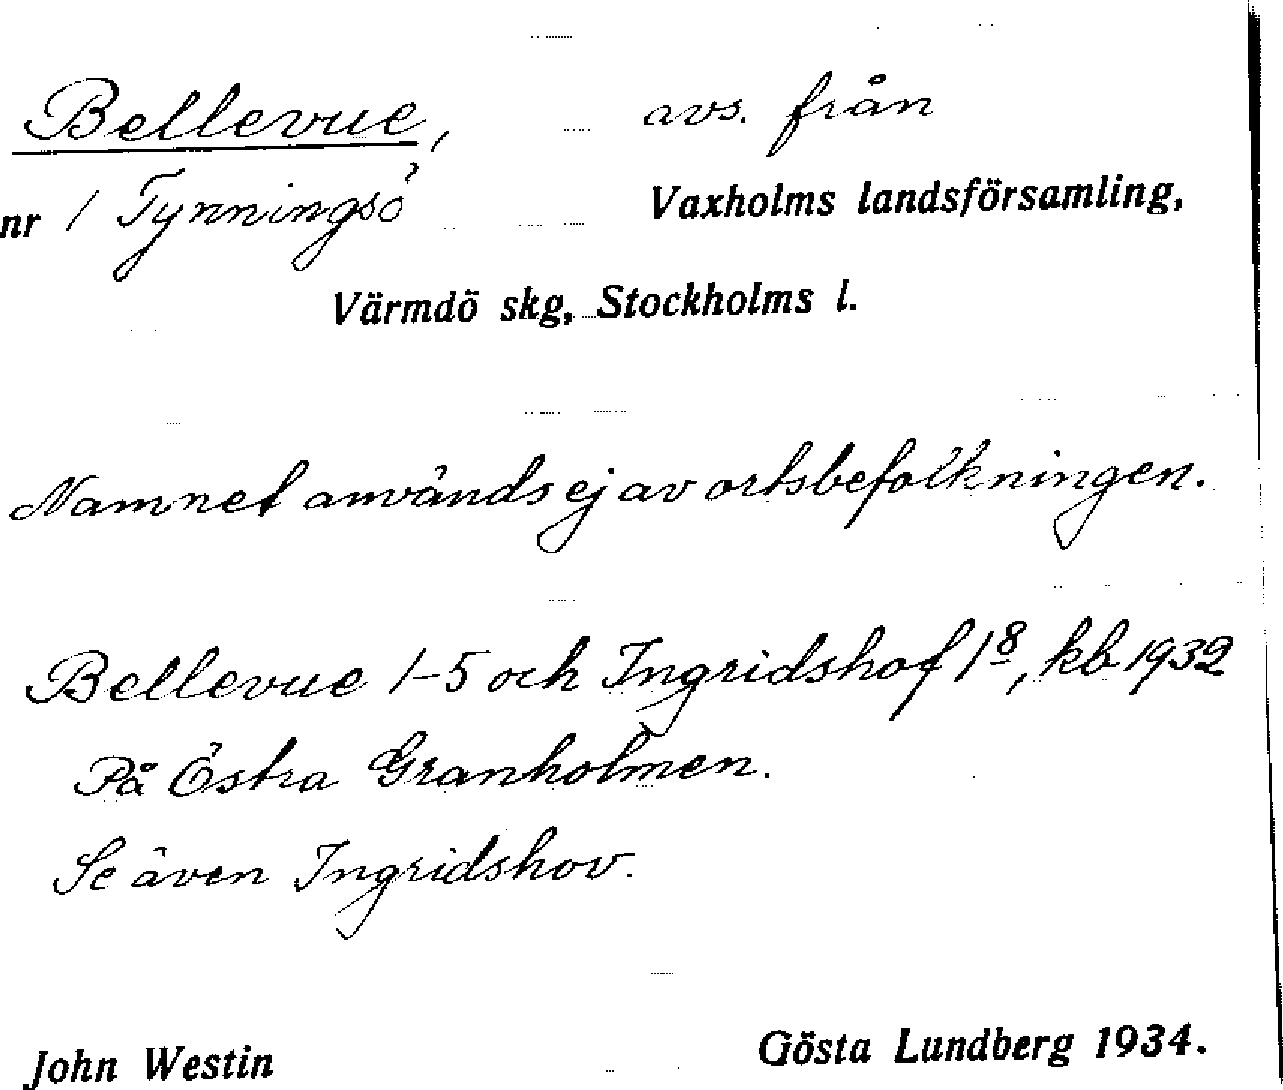 Bellevue, avs. från
nr 1 Tynningsö Vaxholms landsförsamling,
Värmdö skg, Stockholms l.
Namnet används ej av ortsbefolkningen.
Bellevue 1-5 och Ingridshof 1⁸, kb 1932
På Östra Granholmen.
Se även Ingridshov.
John Westin Gösta Lundberg 1934.